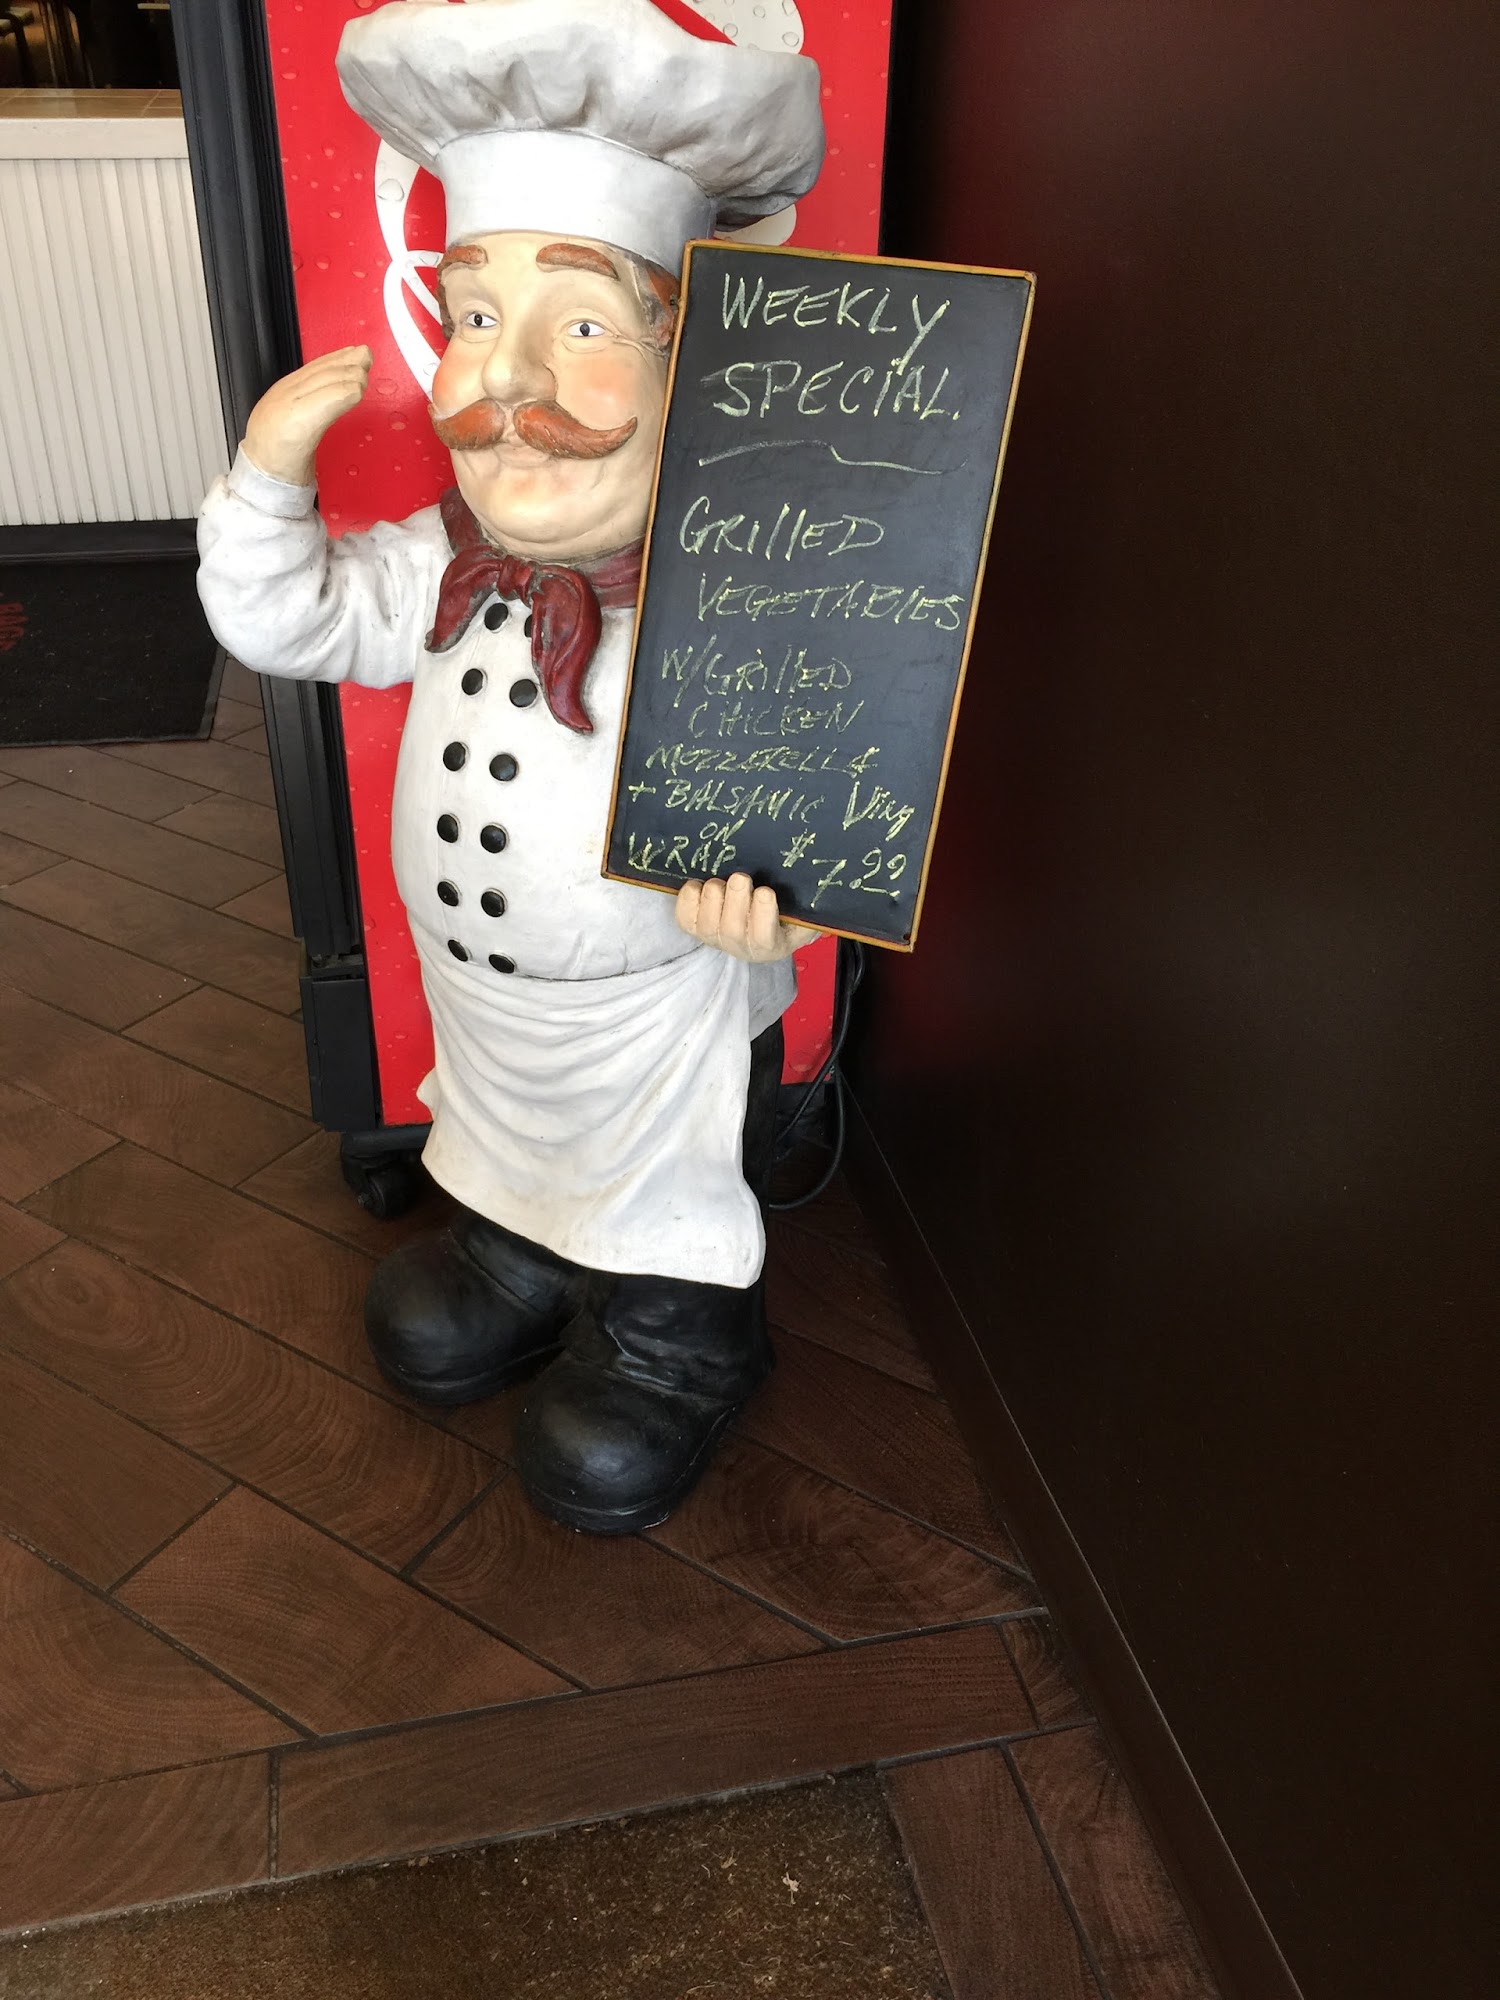 WEEKLY
SPECIAL.
GRIllED
VEGETABLES
W/GRIllED
CHICKEN
MOZZARELLA
+ BALSAMIC VING
ON
WRAP $7.99